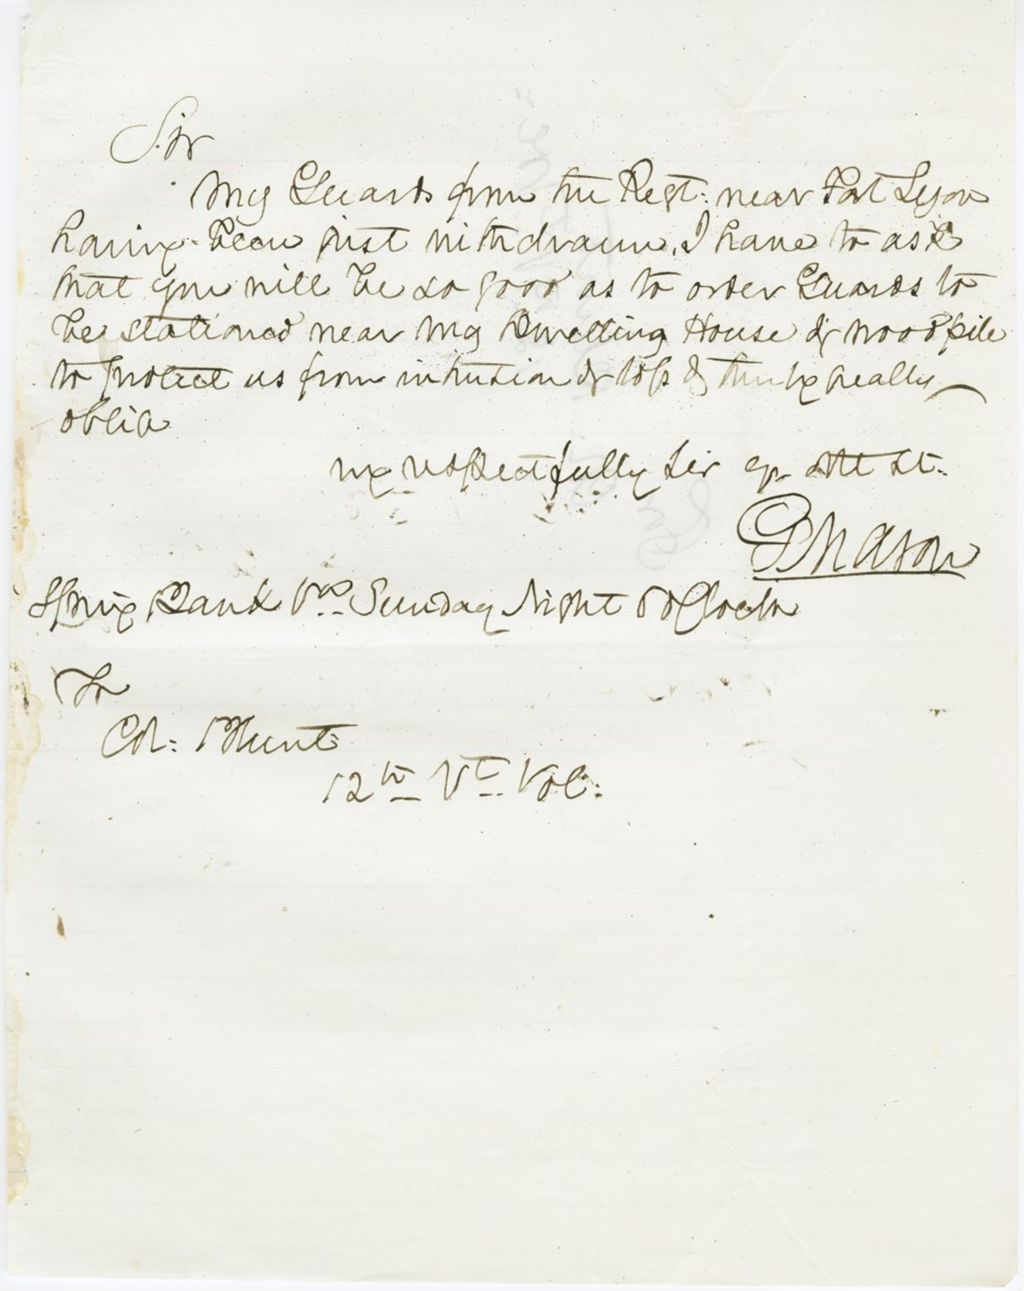 Sir
My Guards from the Regt. near Fort Lyon
having been just withdrawn, I have to ask
that you will be so good as to order Guards to
be stationed near My Dwelling House & wood pile
to protect us from intrusion & loss & greatly
oblig
respectfully Sir Obt St.
G Mason
Spring Bank Va. Sunday Night O'Clock
To
Col: Blunt
12th Vt. Vol: